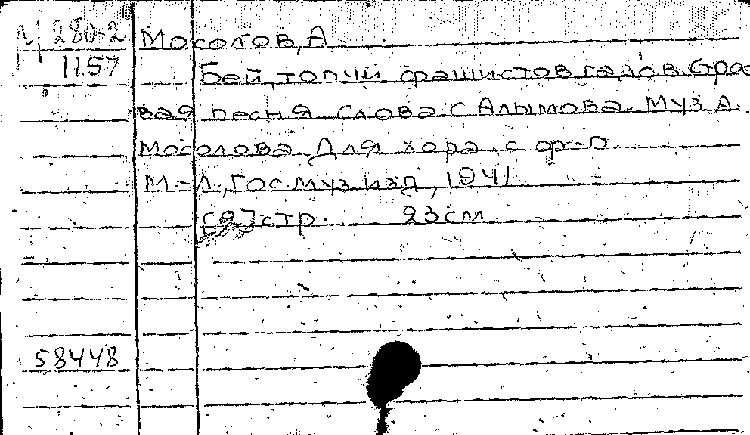 М 280-2
1157
Мосолов, А
Бей, топчи фашистов гадов. Бра-
вая песня. Слова С Алымова. Муз А.
Мосолова. Для хора с ф-п.
М-Л, Гос муз изд, 1941
стр. 23см
58448